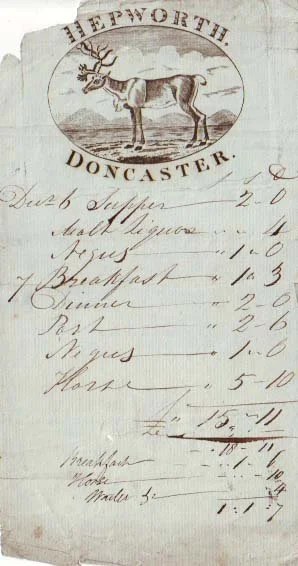 HEPWORTH.
DONCASTER.
s d
Decr 6 Supper 2-0
Malt liquor " " 4
Negus " 1 " 0
7 Breakfast " 1 " 3
Dinner " 2-0
Port " 2-6
Negus " 1 " 0
Horse " 5-10
£ " 15 " 11
" 18 - 11
Breakfast - " 1 - 6
Horse - " - 10
Waiter &c 4
1 " 1 " 7